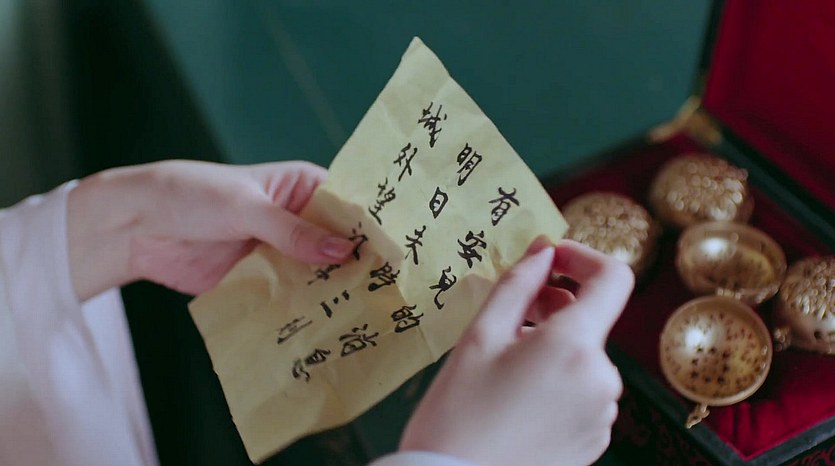 有安兒的消息
明日未時三刻
城外望江亭